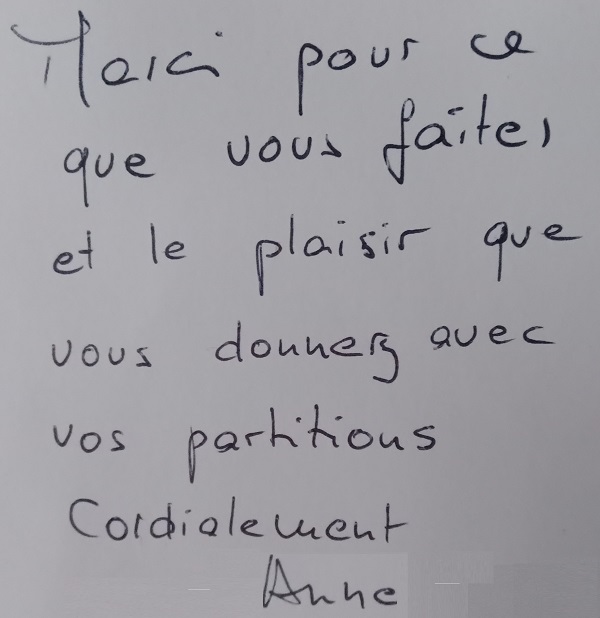 Merci pour ce
que vous faîtes
et le plaisir que
vous donnez avec
vos partitions
Cordialement
Anne